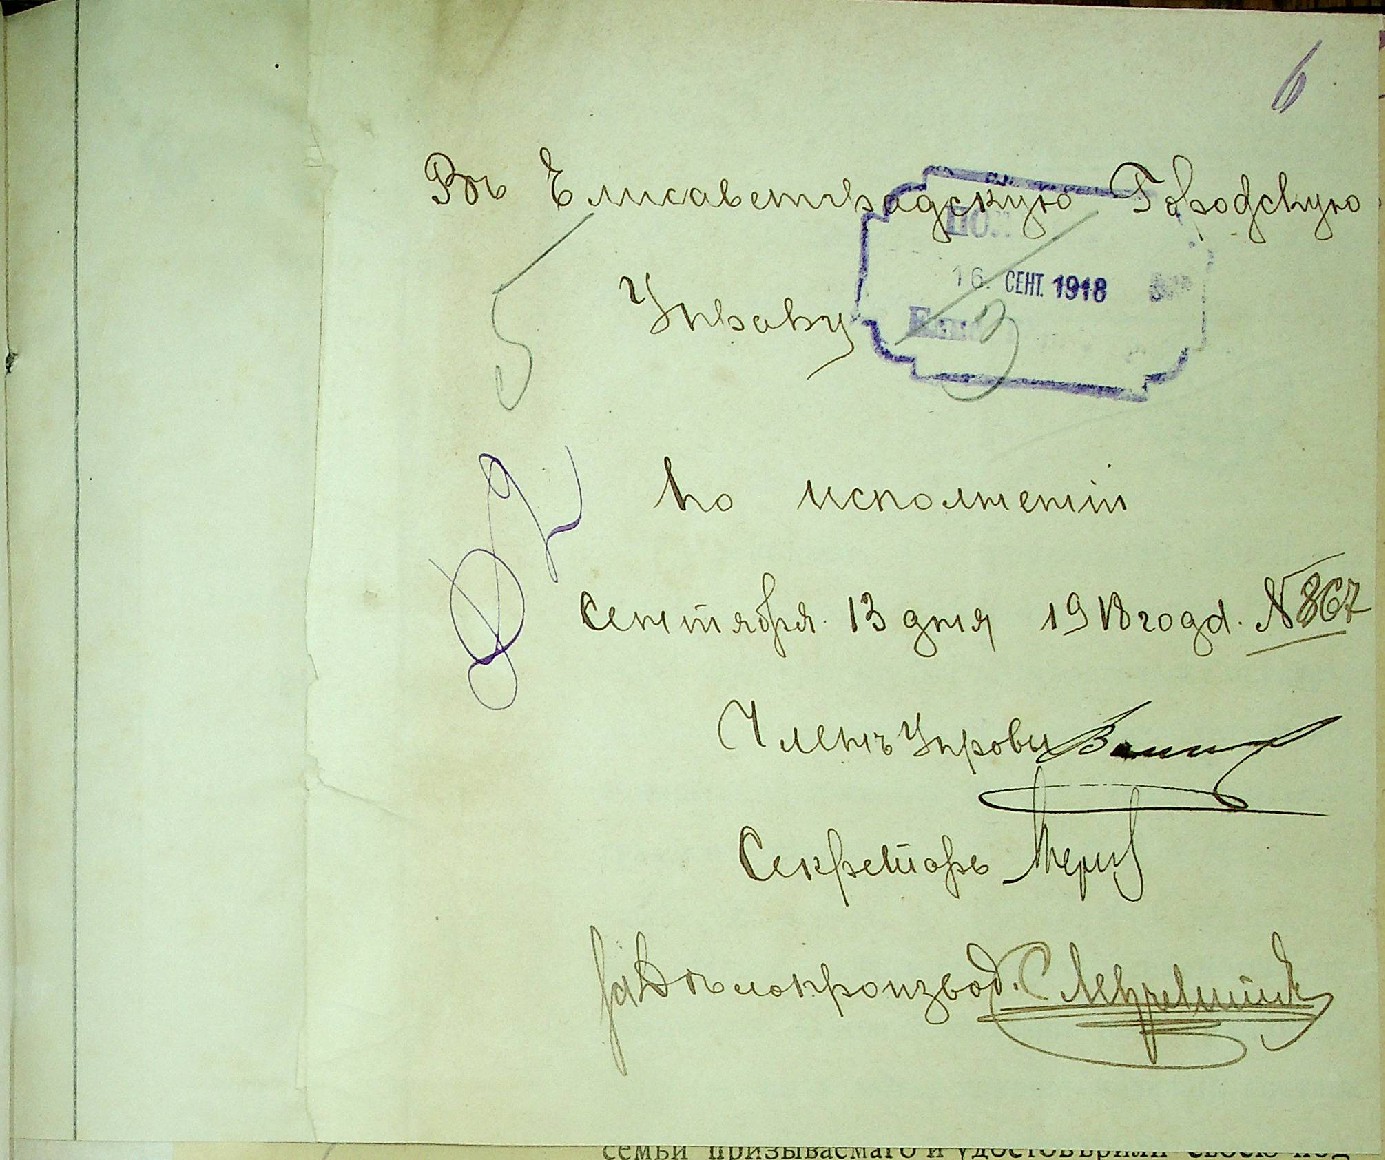 6
Въ Елисаветградскую Городскую
Управу
16. СЕНТ. 1918
По исполненіи
Сентября 13 дня 1918 года. № 867
Членъ Управы
Секретарь
За Дѣлопроизвод.
семьи призываемаго и удостовѣрили свою под